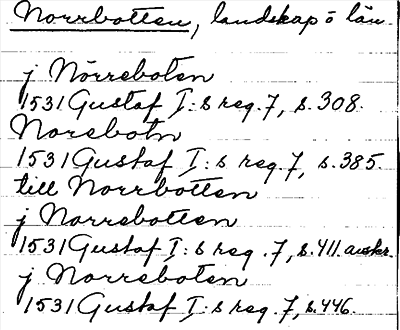 Norrbotten, landskap o län.
j Nörreboten
1531 Gustaf I:s reg. 7, s. 308.
Norebotn
1531 Gustaf I:s reg. 7, s. 385.
till Norrbotten
j Norrebotten
1531 Gustaf I:s reg. 7, s. 411. avskr.
j Norreboten
1531 Gustaf I:s reg. 7, s. 446.